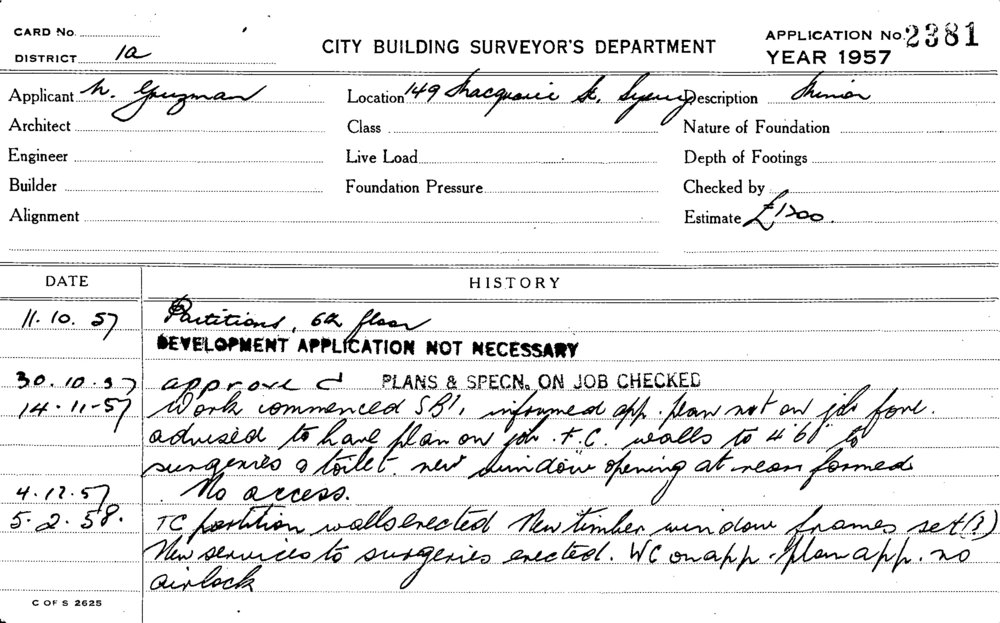 CARD No.
DISTRICT 1a
CITY BUILDING SURVEYOR'S DEPARTMENT
APPLICATION No. 2381
YEAR 1957
Applicant N. Guzman Location 149 Macquarie St. Sydney Description Minor
Architect Class Nature of Foundation
Engineer Live Load Depth of Footings
Builder Foundation Pressure Checked by
Alignment Estimate £1200.
DATE HISTORY
11.10.57 Partitions, 6th floor
DEVELOPMENT APPLICATION NOT NECESSARY
30.10.57 approved PLANS & SPECN. ON JOB CHECKED
14-11-57 Work commenced SB1, informed app. plan not on job
advised to have plan on job. F.C. walls to 4'6" to
surgeries & toilet. new window opening at rear formed
4.12.57 No access.
5.2.58. TC partition walls erected New timber window frames set (?)
New services to surgeries erected. WC on app. plan app. no
airlock
C OF S 2625